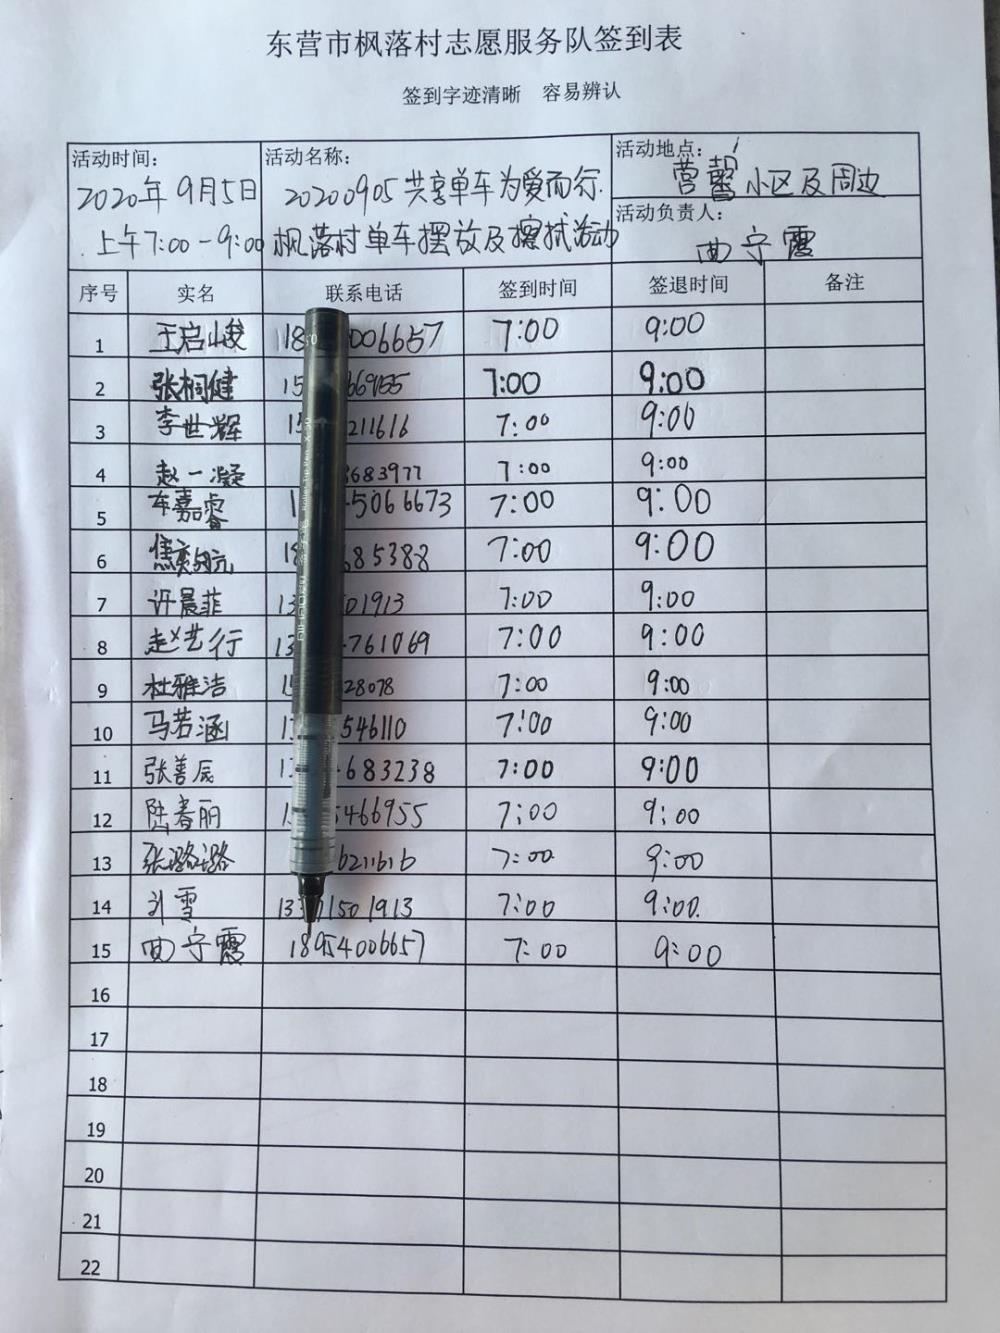 东营市枫落村志愿服务队签到表
签到字迹清晰 容易辨认
活动时间：
2020年9月5日
上午7:00-9:00
活动名称：
20200905共享单车为爱而行
枫落村单车摆放及擦拭活动
活动地点：
营馨小区及周边
活动负责人：
曲宁霞
序号 实名 联系电话 签到时间 签退时间 备注
1 王启峻 18 006657 7:00 9:00
2 张桐健 15 669155 7:00 9:00
3 李世辉 15 211616 7:00 9:00
4 赵一凝 8683977 7:00 9:00
5 车嘉睿 1 5066673 7:00 9:00
6 焦奕 18 685388 7:00 9:00
7 许晨菲 13 501913 7:00 9:00
8 赵艺行 13 761069 7:00 9:00
9 杜雅洁 15 28078 7:00 9:00
10 马若涵 13 546110 7:00 9:00
11 张善辰 13 683238 7:00 9:00
12 陆春丽 15 5466955 7:00 9:00
13 张璐璐 6211616 7:00 9:00
14 刘雪 13 1501913 7:00 9:00
15 曲宁霞 18954006657 7:00 9:00
16
17
18
19
20
21
22